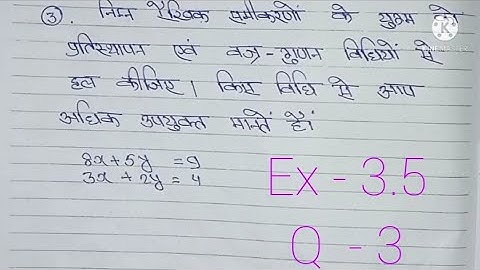 ③. निम्न रैखिक समीकरणों के युग्म को
प्रतिस्थापन एवं वज्र-गुणन विधियों से
हल कीजिए। किस विधि से आप
अधिक उपयुक्त मानतें हैं।
8x+5y = 9
3x + 2y = 4
Ex - 3.5
Q - 3